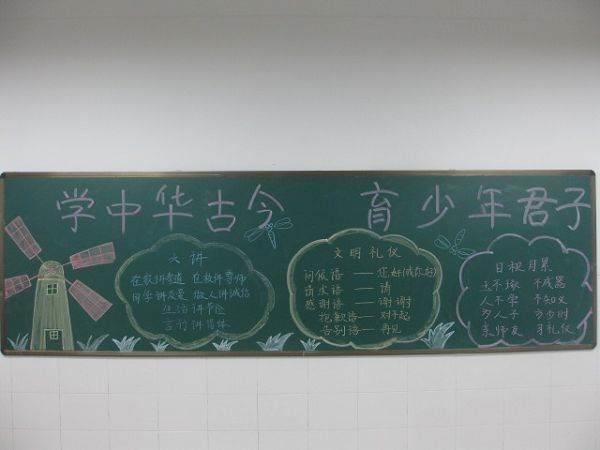 学中华古今 育少年君子
六讲
在家讲孝道 在校讲尊师
同学讲友爱 做人讲诚信
生活讲节俭
言行讲得体
文明礼仪
问候语——您好(或你好)
请求语——请
感谢语——谢谢
抱歉语——对不起
告别语——再见
日积月累
玉不琢 不成器
人不学 不知义
为人子 方少时
亲师友 习礼仪